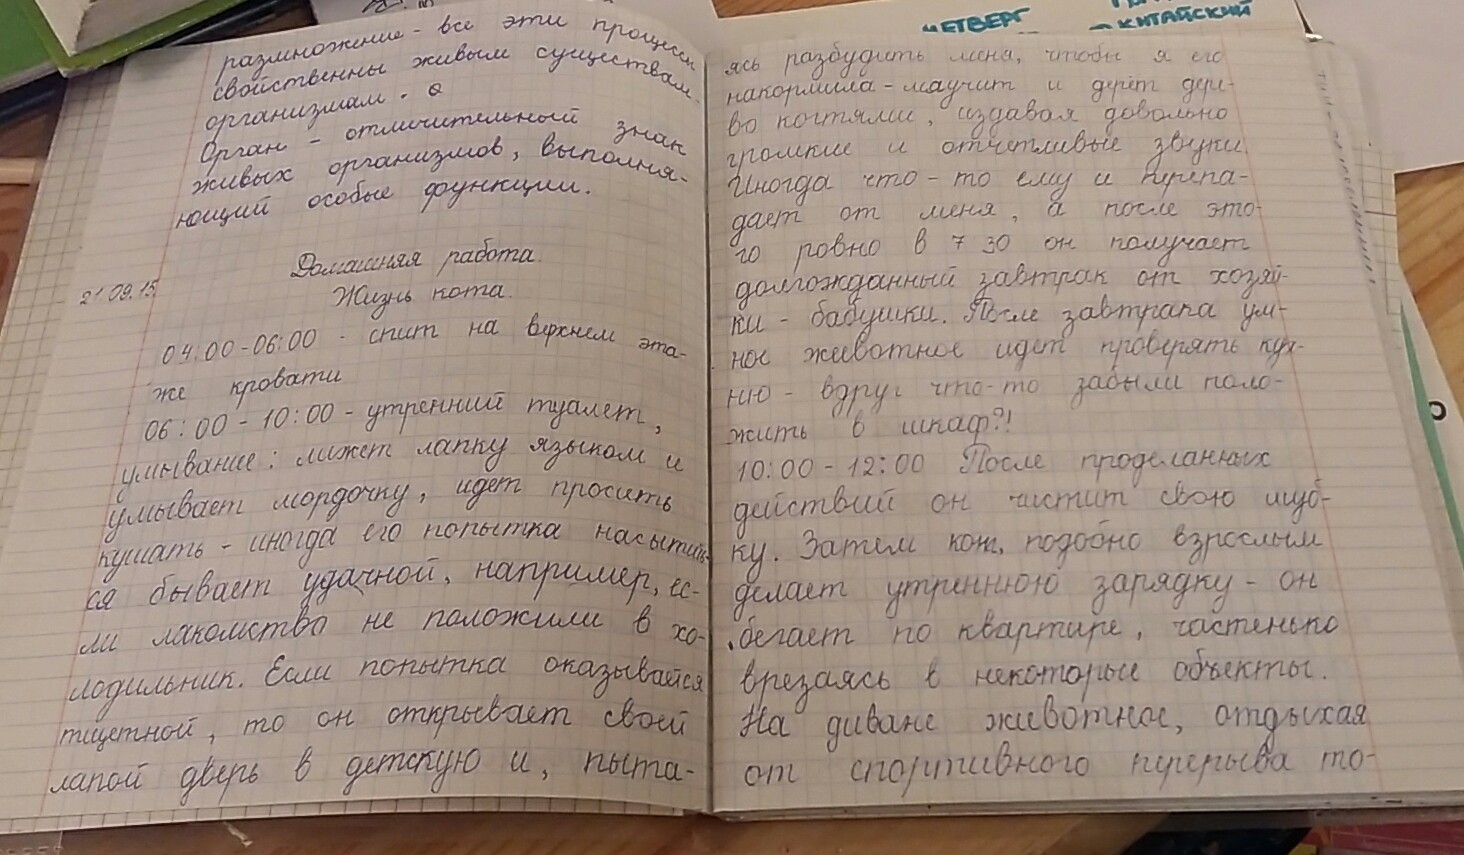 размножение - все эти процессы
свойственны живым существам-
организмам.
Орган - отличительный знак
живых организмов, выполня-
ющий особые функции.
Домашняя работа.
21.09.15
Жизнь кота.
04:00-06:00 - спит на верхнем эта-
же кровати
06:00-10:00 - утренний туалет,
умывание: лижет лапку языком и
умывает мордочку, идет просить
кушать - иногда его попытка насытить-
ся бывает удачной, например, ес-
ли лакомство не положили в хо-
лодильник. Если попытка оказывается
тщетной, то он открывает своей
лапой дверь в детскую и, пыта-
ясь разбудить меня, чтобы я его
накормила - маучит и дерёт дере-
во когтями, издавая довольно
громкие и отчётливые звуки.
Иногда что-то ему и перепа-
дает от меня, а после это-
го ровно в 7 30 он получает
долгожданный завтрак от хозяй-
ки - бабушки. После завтрака ум-
ное животное идет проверять кух-
ню - вдруг что-то забыли поло-
жить в шкаф?!
10:00-12:00 После проделанных
действий он чистит свою шуб-
ку. Затем кот, подобно взрослым
делает утреннюю зарядку - он
бегает по квартире, частенько
врезаясь в некоторые объекты.
На диване животное, отдыхая
от спортивного перерыва то-
ЧЕТВЕРГ
КИТАЙСКИЙ